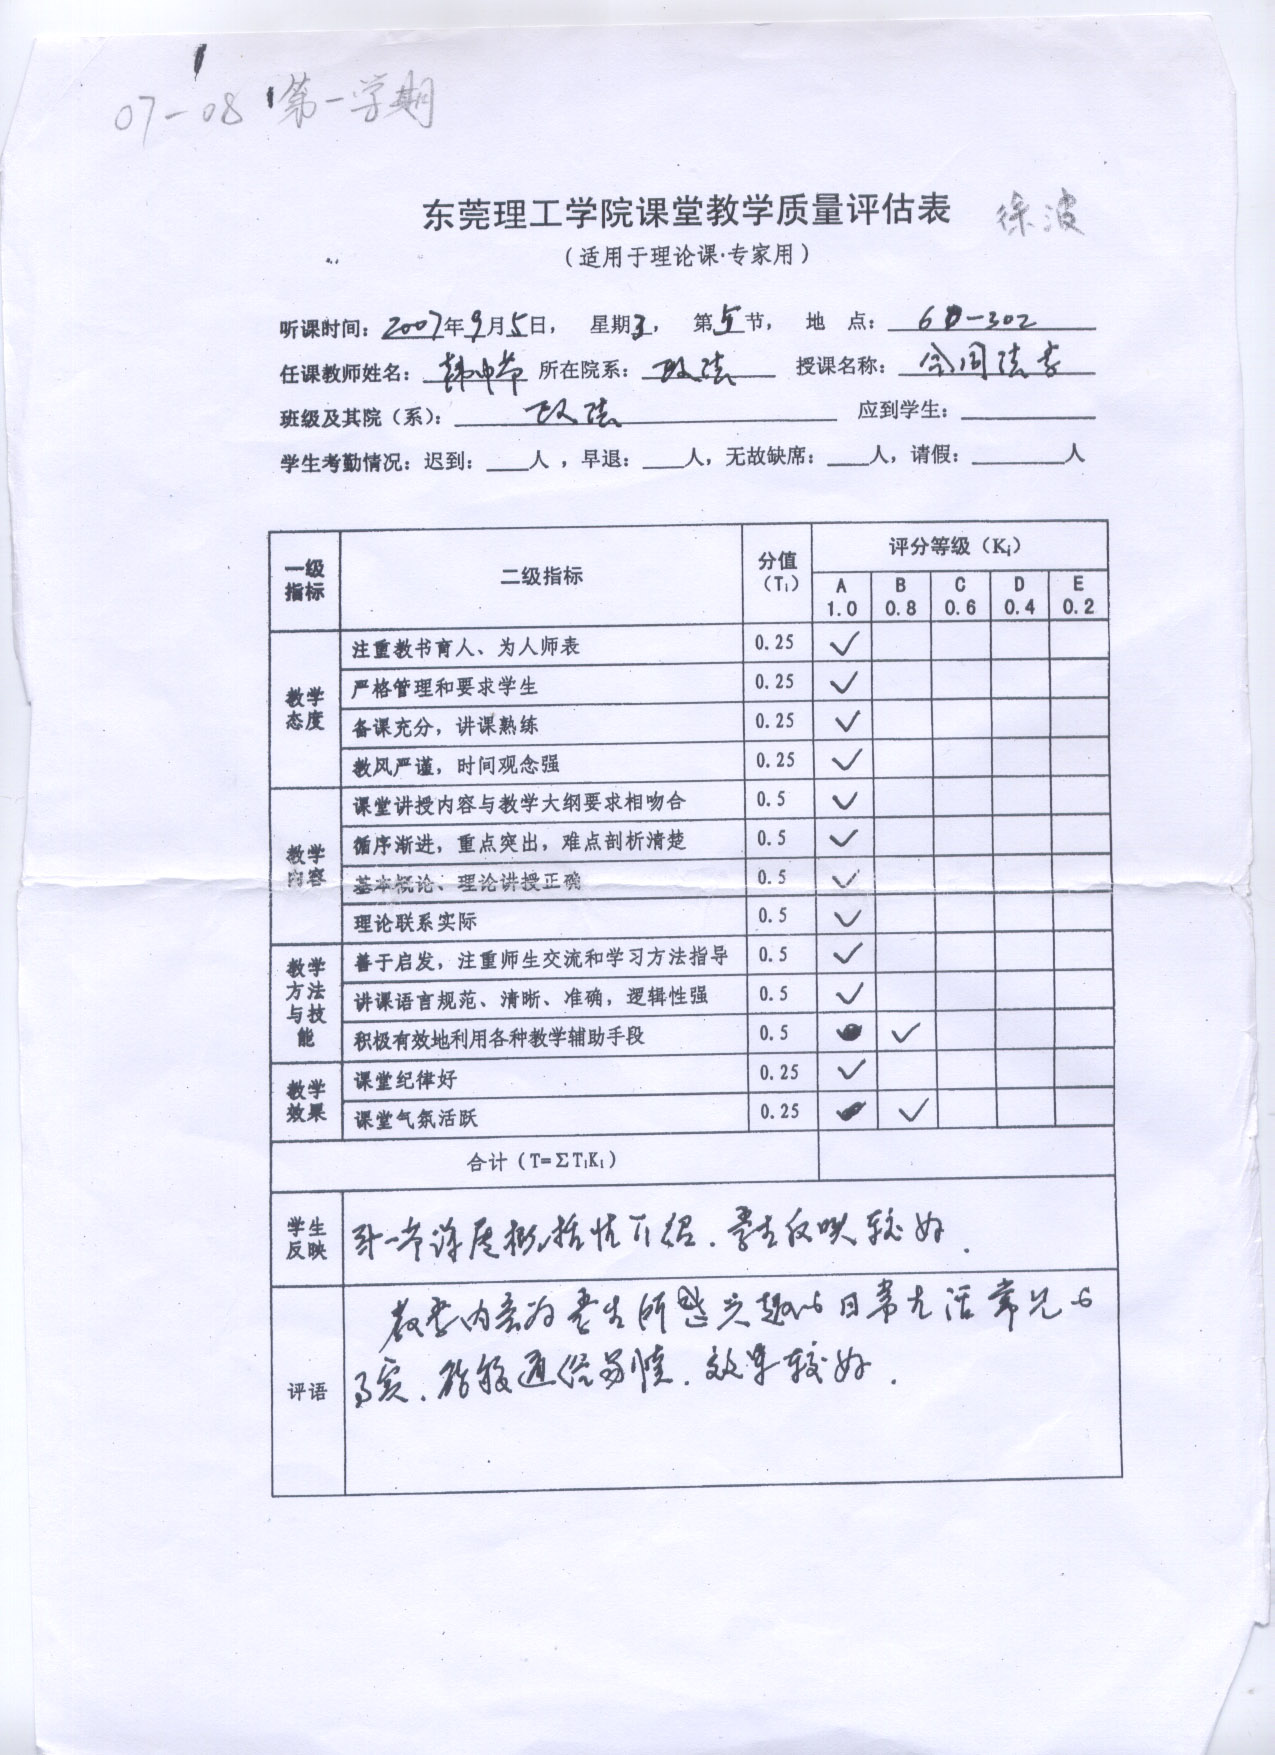 07-08 第一学期
东莞理工学院课堂教学质量评估表 徐波
(适用于理论课·专家用)
听课时间: 2007年9月5日, 星期3, 第5节, 地 点: 6 -302
任课教师姓名: 韩中节 所在院系: 政法 授课名称: 合同法学
班级及其院(系): 政法 应到学生:
学生考勤情况: 迟到: 人, 早退: 人, 无故缺席: 人, 请假: 人
一级指标 二级指标 分值(Ti) 评分等级(Ki)
A 1.0 B 0.8 C 0.6 D 0.4 E 0.2
教学态度 注重教书育人、为人师表 0.25 ✓
严格管理和要求学生 0.25 ✓
备课充分, 讲课熟练 0.25 ✓
教风严谨, 时间观念强 0.25 ✓
教学内容 课堂讲授内容与教学大纲要求相吻合 0.5 ✓
循序渐进, 重点突出, 难点剖析清楚 0.5 ✓
基本概论、理论讲授正确 0.5 ✓
理论联系实际 0.5 ✓
教学方法与技能 善于启发, 注重师生交流和学习方法指导 0.5 ✓
讲课语言规范、清晰、准确, 逻辑性强 0.5 ✓
积极有效地利用各种教学辅助手段 0.5 ✓
教学效果 课堂纪律好 0.25 ✓
课堂气氛活跃 0.25 ✓
合计(T=ΣTiKi)
学生反映 第一节课是概括性介绍. 学生反映较好.
评语 教学内容为学生所感兴趣的日常生活常见的
事实. 能较通俗易懂. 效果较好.